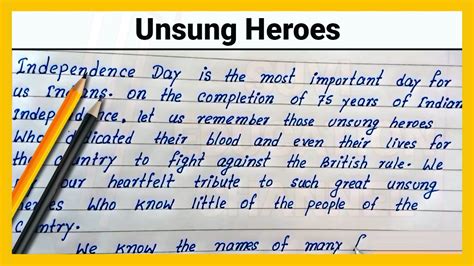 Unsung Heroes
Independence Day is the most important day for
us Indians. on the completion of 75 years of Indian
Independence, let us remember those unsung heroes
who dedicated their blood and even their lives for
the country to fight against the British rule. We
our heartfelt tribute to such great unsung
heroes who know little of the people of the
country.
We know the names of many